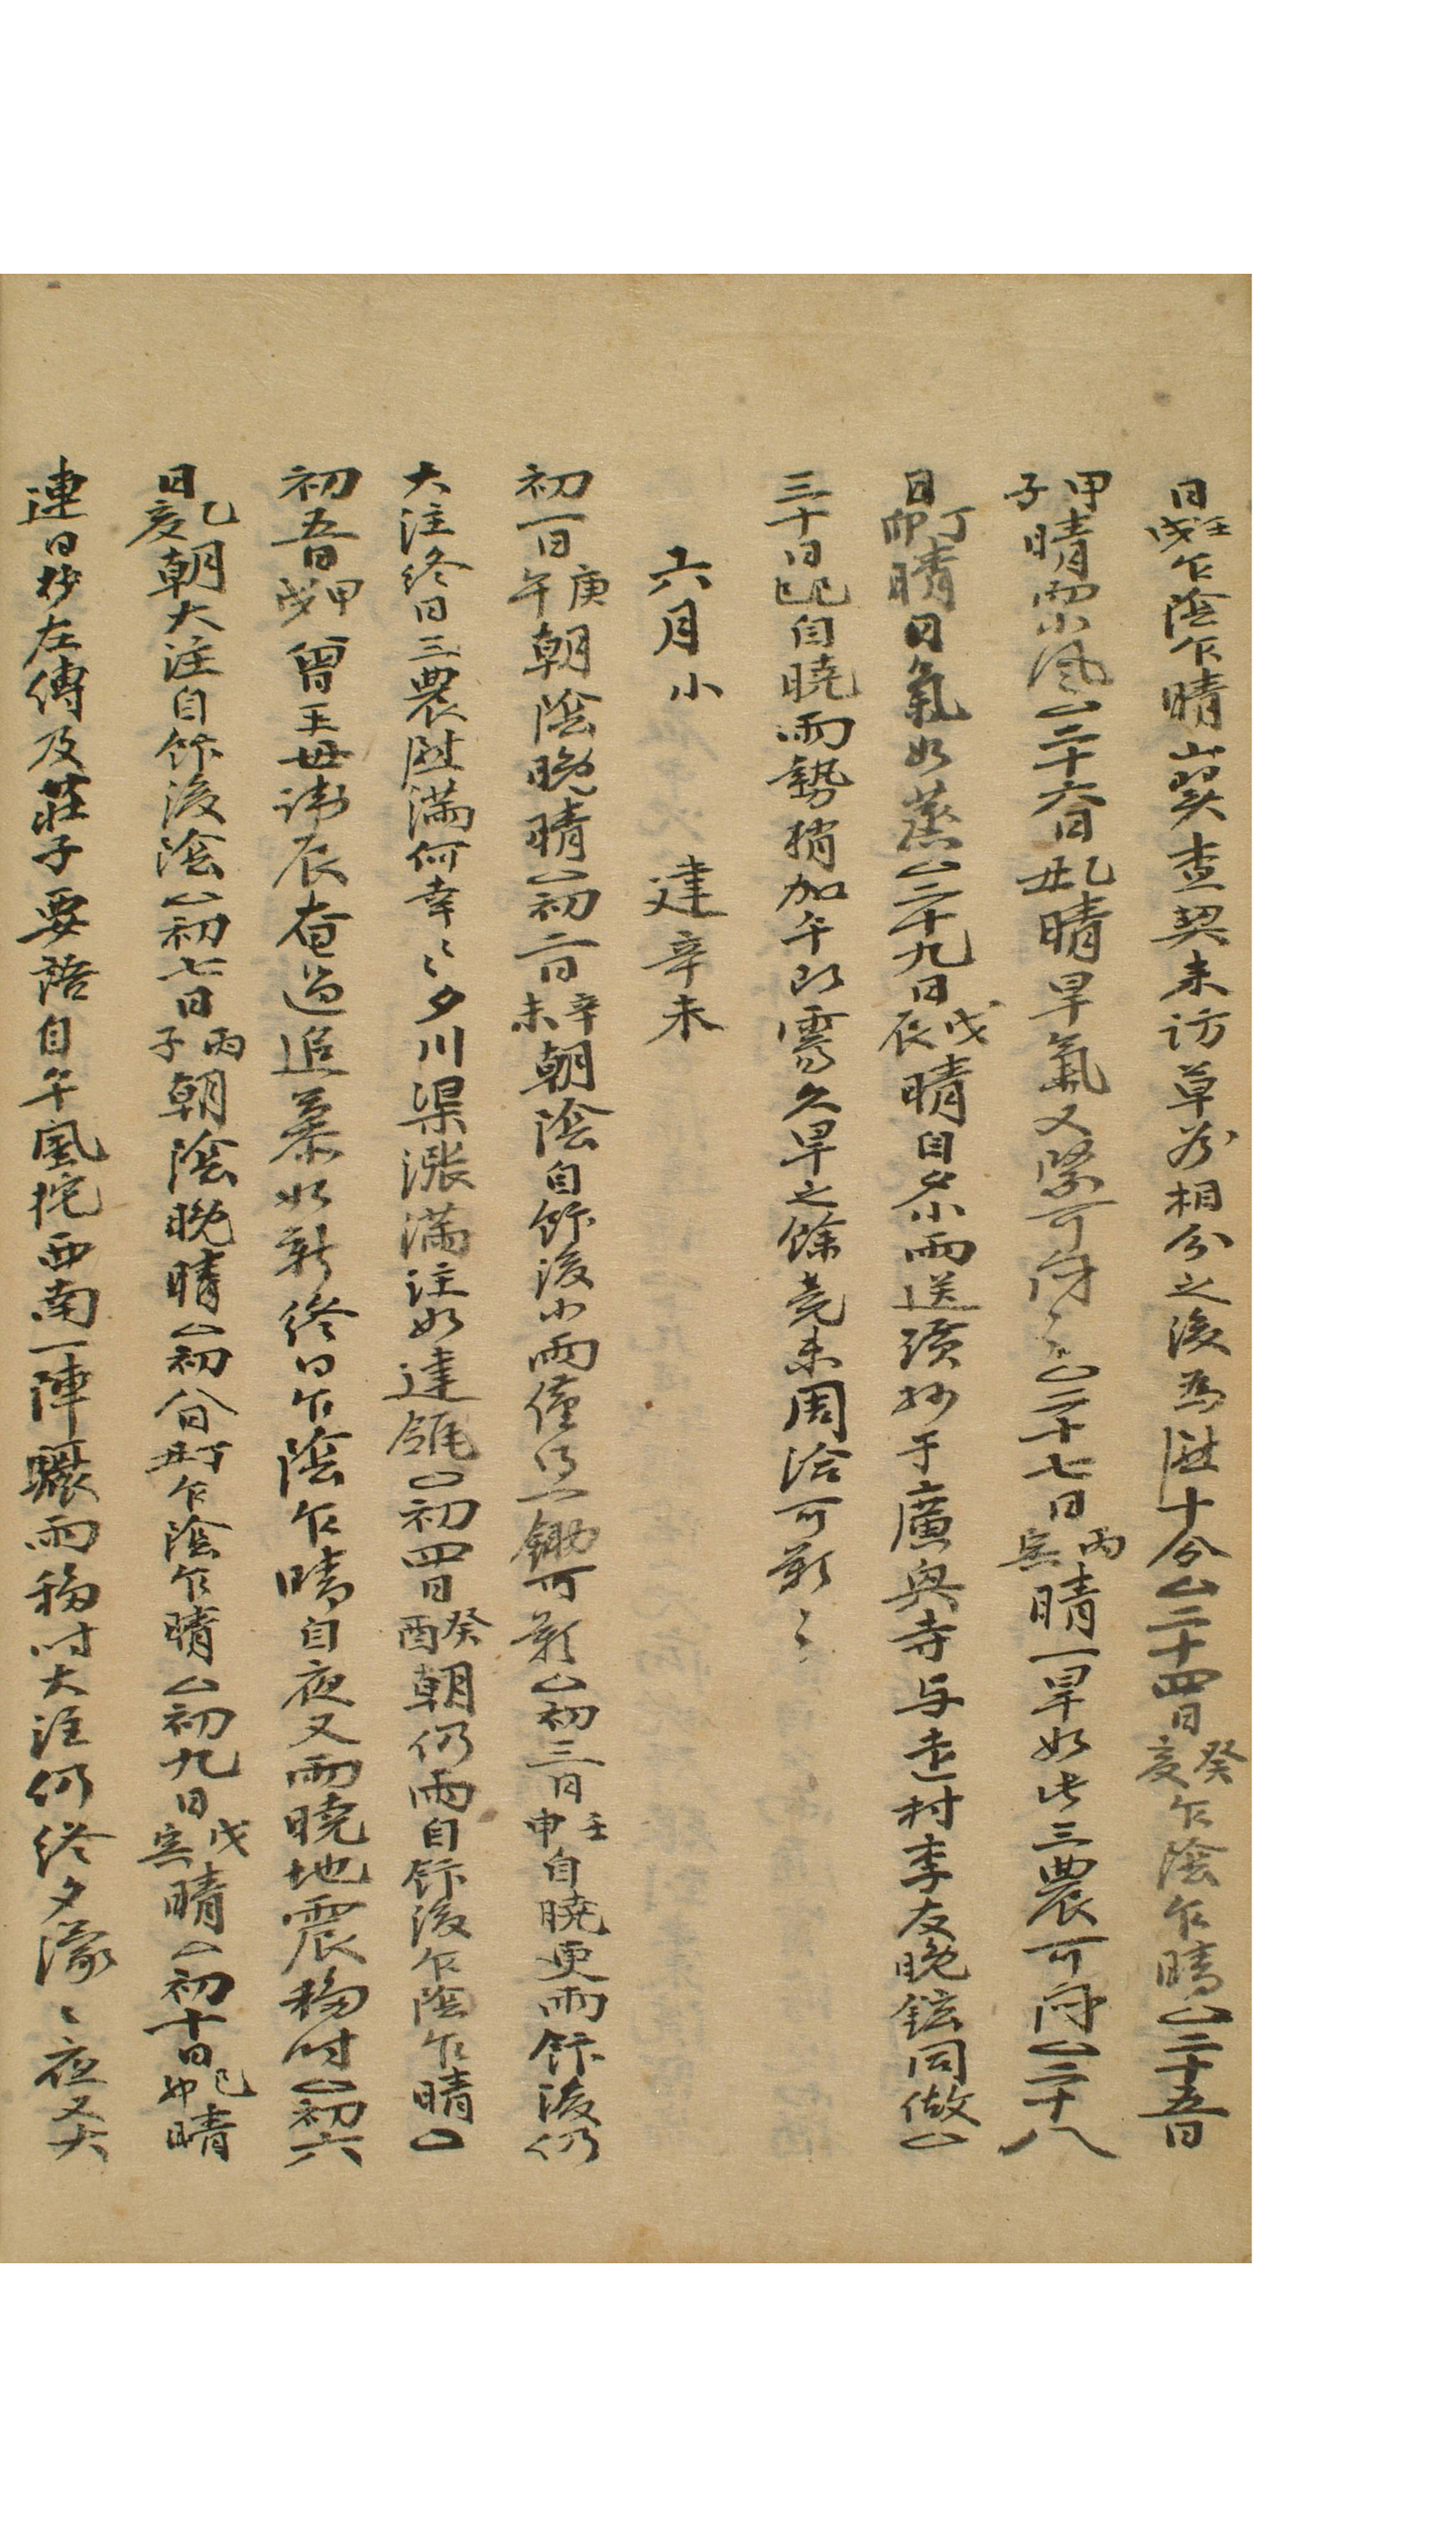 日壬戌乍陰乍晴山巽查契來訪草草相分之後爲 十分△二十四日癸亥乍陰乍晴△二十五日
甲子晴而小風△二十六日乙丑晴旱氣又緊可悶〻△二十七日丙寅晴一旱如此三農可悶△二十八
日丁卯晴日氣如蒸△二十九日戊辰晴自夕小雨送 抄于廣興寺与 村李友晩鉉同做△
三十日己巳自曉雨勢稍加午以霽久旱之餘竟未周洽可歎〻
六月小 建辛未
初一日庚午朝陰晩晴△初二日辛未朝陰自飰後小雨僅 一鋤可歎△初三日壬申自曉更雨飰後仍
大注終日三農 滿何幸〻夕川渠漲滿注如建瓴△初四日癸酉朝仍雨自飰後乍陰乍晴△
初五日甲戌曾王母諱辰奄過追慕如新終日乍陰乍晴自夜又雨曉地震移時△初六
日乙亥朝大注自飰後陰△初七日丙子朝陰晩晴△初八日丁丑乍陰乍晴△初九日戊寅晴△初十日己卯晴
連日抄左傳及莊子要語自午風 西南一陣驟雨移時大注仍終夕濛〻夜又大